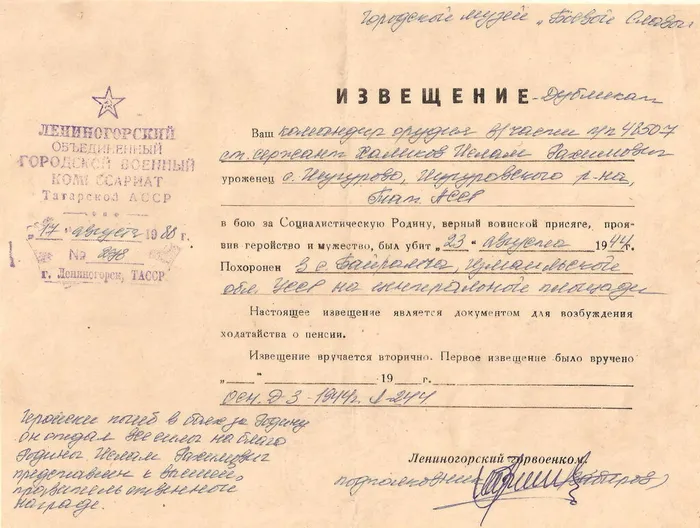 Городской музей „Боевой Славы
ИЗВЕЩЕНИЕ - Дубликат
ЛЕНИНОГОРСКИЙ
ОБЪЕДИНЕННЫЙ
ГОРОДСКОЙ ВОЕННЫЙ
КОМИССАРИАТ
Татарской АССР
"17" августа 1988 г.
№ 238
г. Лениногорск, ТАССР
Ваш командир орудия в/части п/п 48507
ст. сержант Халиков Ислам Рахимович
уроженец с. Шугурово, Шугуровского р-на,
Тат АССР
в бою за Социалистическую Родину, верный воинской присяге, проя-
вив геройство и мужество, был убит "23" августа 1944 г.
Похоронен в с. Байрамча, Измаильской
обл. УССР на центральной площади
Настоящее извещение является документом для возбуждения
ходатайства о пенсии.
Извещение вручается вторично. Первое извещение было вручено
„ “ 19 г.
осн. Д-3-1944г. л-244
Геройски погиб в боях за Родину
он отдал все силы на благо
Родины Ислам Рахимович
представлен к высшей
правительственной
награде.
Лениногорский горвоенком
подполковник